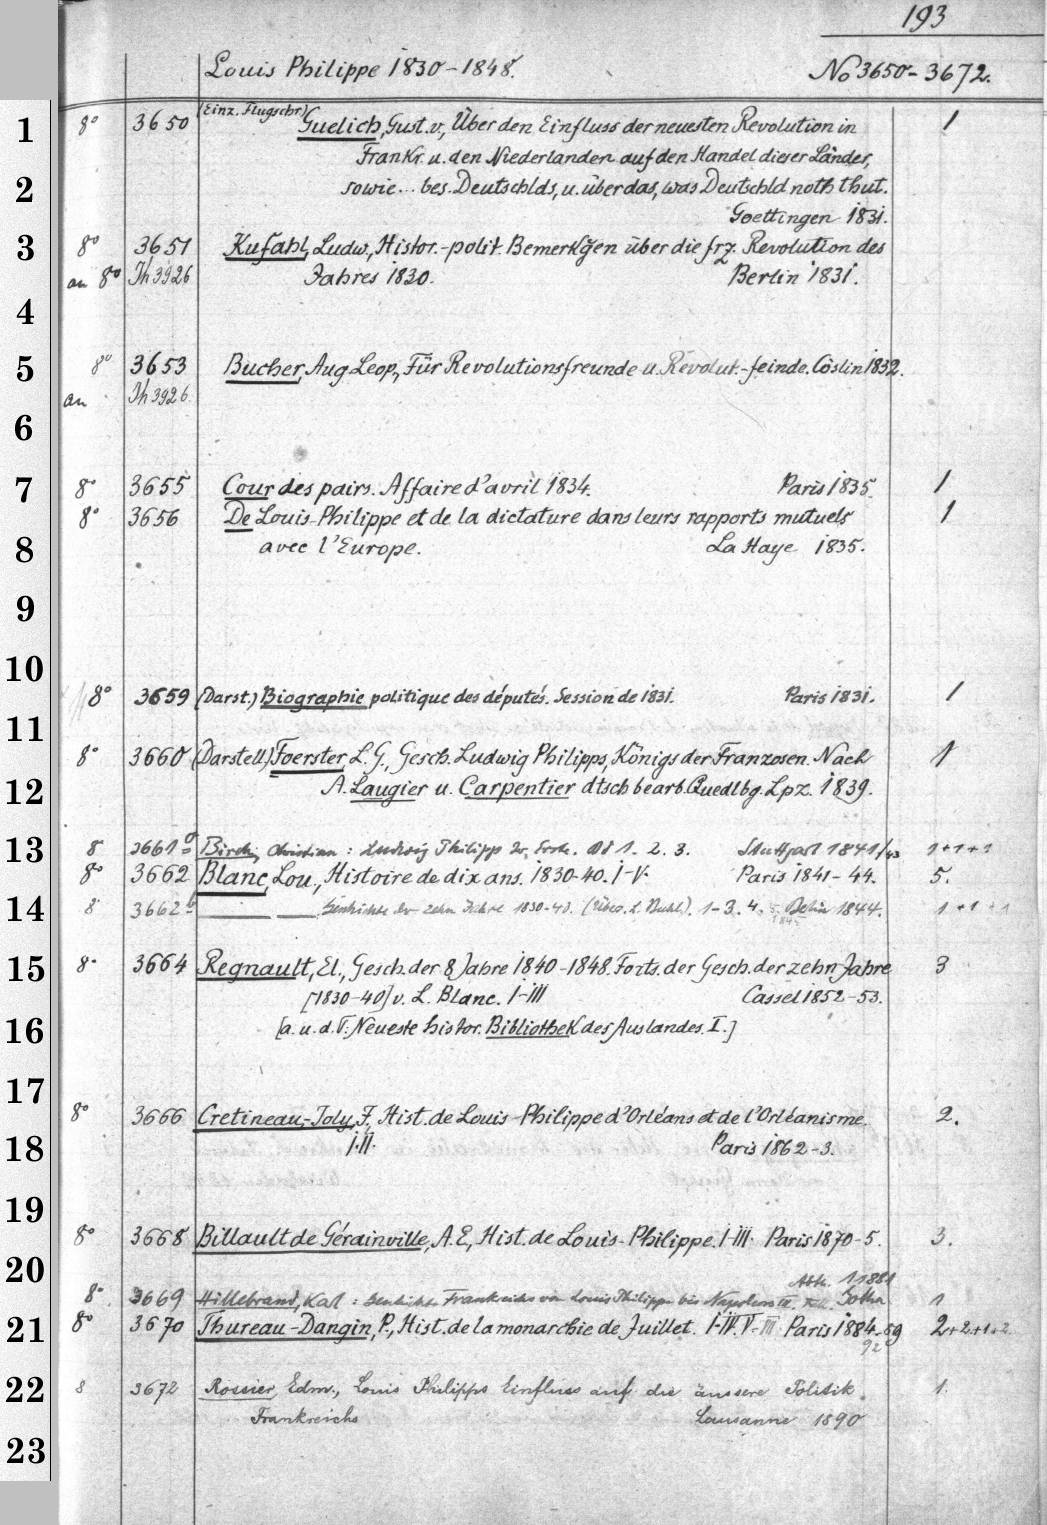 193
Louis Philippe 1830-1848. No 3650-3672.
1 8° 3650 (Einz. Flugschr.) Guelich, Gust. v., Über den Einfluss der neuesten Revolution in 1
Frankr. u. den Niederlanden auf den Handel dieser Länder,
2 sowie... bes. Deutschlds, u. über das, was Deutschld noth thut.
Goettingen 1831.
3 8° 3651 Kufahl, Ludw., Histor.-polit. Bemerkgen über die frz. Revolution des
an 8° Jh 3926 Jahres 1830. Berlin 1831.
4
5 8° 3653 Bucher, Aug. Leop., Für Revolutionsfreunde u. Revolut.-feinde. Cöslin 1832.
an Jh 3926
6
7 8° 3655 Cour des pairs. Affaire d'avril 1834. Paris 1835. 1
8° 3656 De Louis-Philippe et de la dictature dans leurs rapports mutuels 1
8 avec l'Europe. La Haye 1835.
9
10
8° 3659 (Darst.) Biographie politique des députés. Session de 1831. Paris 1831. 1
11
8° 3660 (Darstell.) Foerster, L. G., Gesch. Ludwig Philipps, Königs der Franzosen. Nach 1
12 A. Laugier u. Carpentier dtsch bearb. Quedlbg. Lpz. 1839.
13 8 3661a Birch, Christian: Ludwig Philipp Bd 1. 2. 3. Stuttgart 1841/43 1+1+1
8° 3662 Blanc, Lou., Histoire de dix ans. 1830-40. I-V. Paris 1841-44. 5.
14 8 3662b Geschichte der zehn Jahre 1830-40. 1-3. 4. 5. Berlin 1844. 1+1+1
1845
15 8° 3664 Regnault, El., Gesch. der 8 Jahre 1840-1848. Forts. der Gesch. der zehn Jahre 3
[1830-40] v. L. Blanc. I-III Cassel 1852-53.
16 [a. u. d. T. Neueste histor. Bibliothek des Auslandes. I.]
17
8° 3666 Cretineau-Joly, F., Hist. de Louis-Philippe d'Orléans et de l'Orléanisme. 2.
18 I.II. Paris 1862-3.
19
8° 3668 Billault de Gérainville, A. E., Hist. de Louis-Philippe. I-III. Paris 1870-5. 3.
20 1881
8° 3669 Hillebrand, Karl: Geschichte Frankreichs von Louis Philippe bis Napoleon III. Gotha 1
21 8° 3670 Thureau-Dangin, P., Hist. de la monarchie de Juillet. I-IV. V-VII Paris 1884-89 2+2+1+2
92
22 8 3672 Rossier, Edm., Louis Philipps Einfluss auf die äussere Politik 1.
Frankreichs Lausanne 1890
23